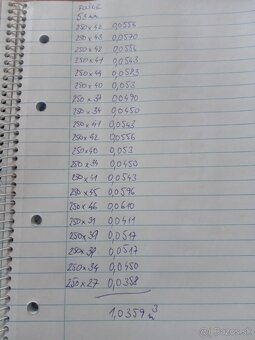 53 mm
250 x 42 0,0556
250 x 43 0,0570
250 x 42 0,0556
250 x 41 0,0543
250 x 44 0,0583
250 x 40 0,053
250 x 37 0,0490
250 x 34 0,0450
250 x 41 0,0543
250 x 42 0,0556
250 x 40 0,053
250 x 34 0,0450
250 x 41 0,0543
250 x 45 0,0596
250 x 46 0,0610
250 x 31 0,0411
250 x 39 0,0517
250 x 39 0,0517
250 x 34 0,0450
250 x 27 0,0358
1,0359 m³
bazar.sk